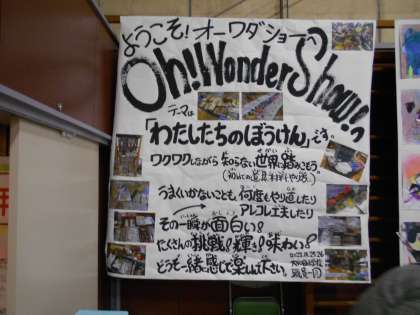 ようこそ!オーワダショーへ
Oh!!Wonder Show!!
テーマは
「わたしたちのぼうけん」です。
ワクワクしながら知らない世界に踏みこもう。
うまくいかないことも何度もやり直したり
アレコレ工夫したり
その一瞬が面白い!
たくさんの挑戦!輝き!味わい!
どうぞ一緒に感じて楽しんで下さい。
職員一同